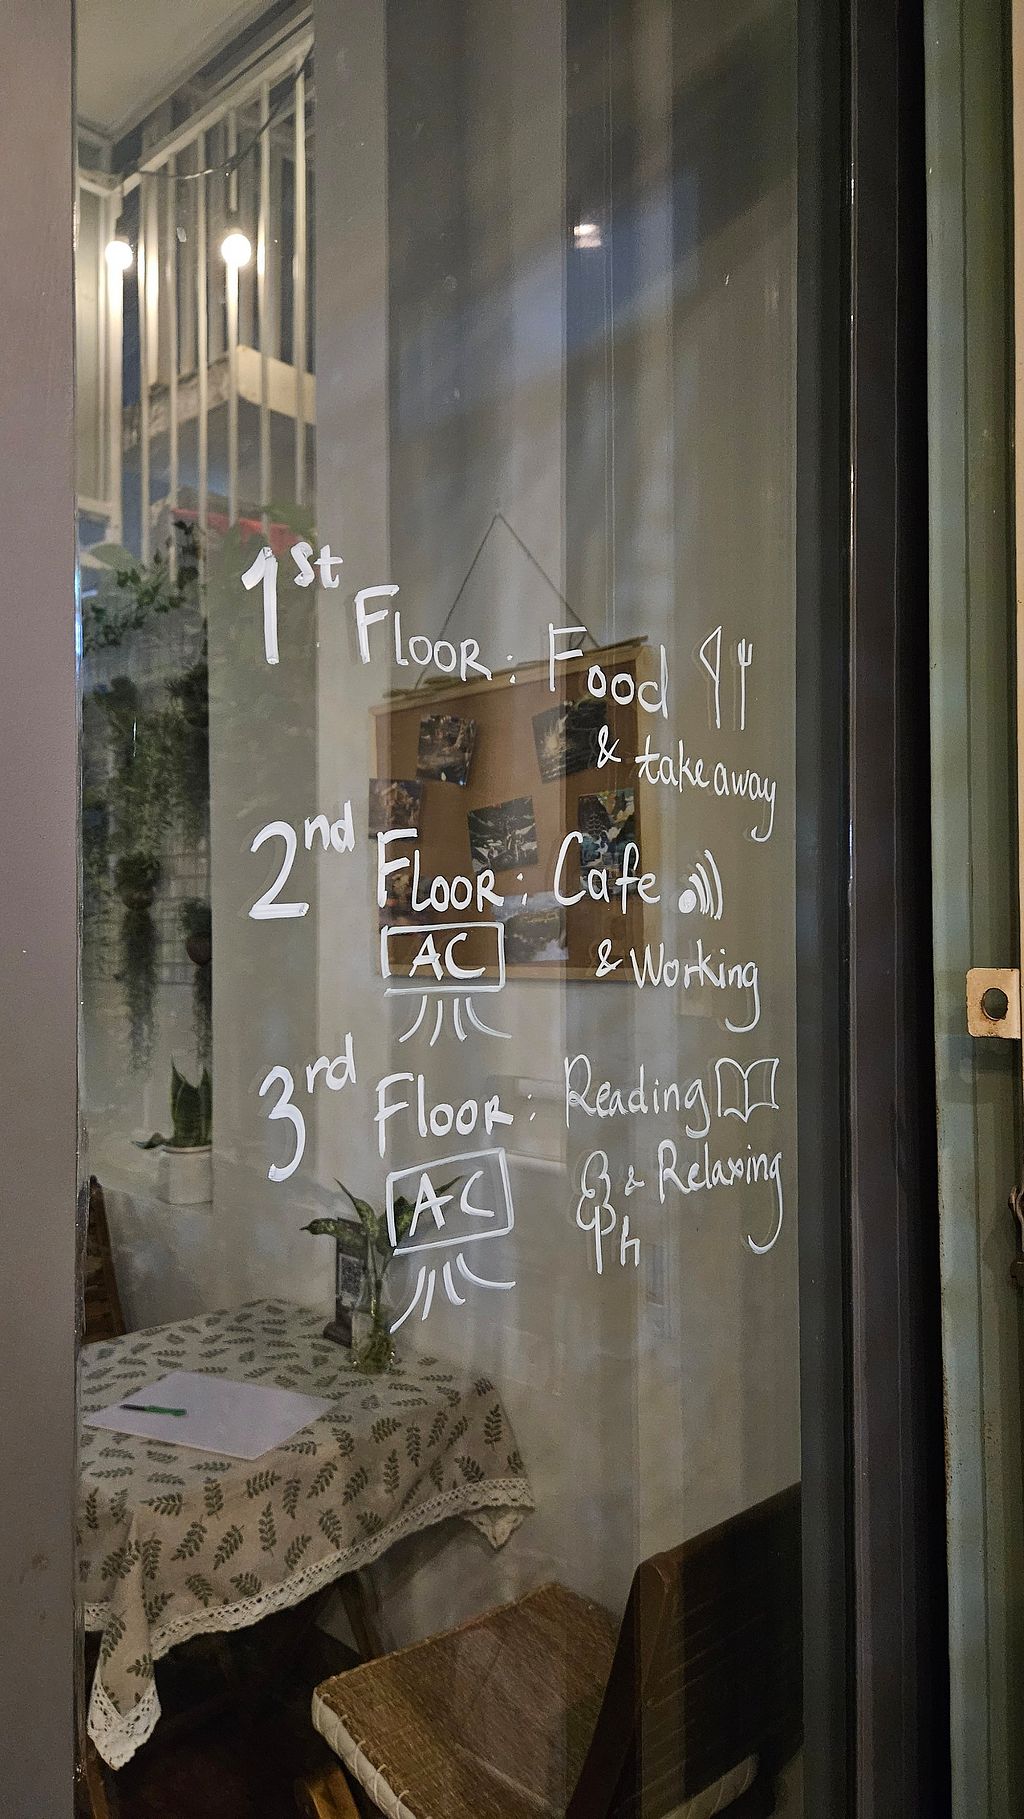 1st FLOOR: Food
& takeaway
2nd FLOOR: Cafe
AC & Working
3rd FLOOR: Reading
AC & Relaxing